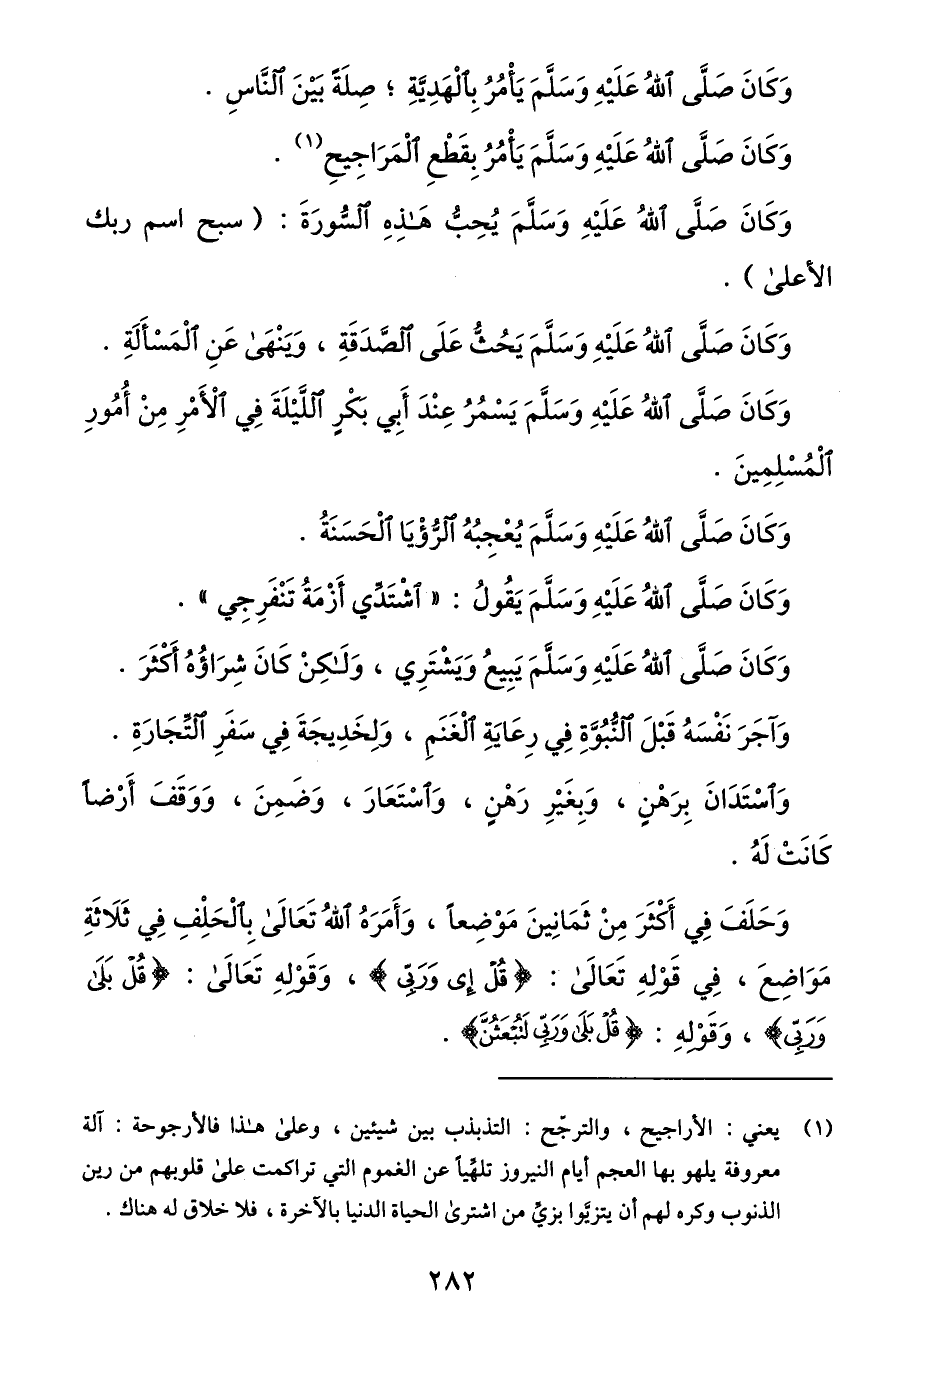 وَكَانَ صَلَّى ٱللهُ عَلَيْهِ وَسَلَّمَ يَأْمُرُ بِٱلْهَدِيَّةِ ؛ صِلَةً بَيْنَ ٱلنَّاسِ .
وَكَانَ صَلَّى ٱللهُ عَلَيْهِ وَسَلَّمَ يَأْمُرُ بِقَطْعِ ٱلْمَرَاجِيحِ(١) .
وَكَانَ صَلَّى ٱللهُ عَلَيْهِ وَسَلَّمَ يُحِبُّ هَـٰذِهِ ٱلسُّورَةَ : ( سبح اسم ربك
الأعلىٰ ) .
وَكَانَ صَلَّى ٱللهُ عَلَيْهِ وَسَلَّمَ يَحُثُّ عَلَى ٱلصَّدَقَةِ ، وَيَنْهَىٰ عَنِ ٱلْمَسْأَلَةِ .
وَكَانَ صَلَّى ٱللهُ عَلَيْهِ وَسَلَّمَ يَسْمُرُ عِنْدَ أَبِي بَكْرٍ ٱللَّيْلَةَ فِي ٱلْأَمْرِ مِنْ أُمُورِ
ٱلْمُسْلِمِينَ .
وَكَانَ صَلَّى ٱللهُ عَلَيْهِ وَسَلَّمَ يُعْجِبُهُ ٱلرُّؤْيَا ٱلْحَسَنَةُ .
وَكَانَ صَلَّى ٱللهُ عَلَيْهِ وَسَلَّمَ يَقُولُ : « ٱشْتَدِّي أَزْمَةُ تَنْفَرِجِي » .
وَكَانَ صَلَّى ٱللهُ عَلَيْهِ وَسَلَّمَ يَبِيعُ وَيَشْتَرِي ، وَلَـٰكِنْ كَانَ شِرَاؤُهُ أَكْثَرَ .
وَآجَرَ نَفْسَهُ قَبْلَ ٱلنُّبُوَّةِ فِي رِعَايَةِ ٱلْغَنَمِ ، وَلِخَدِيجَةَ فِي سَفَرِ ٱلتِّجَارَةِ .
وَٱسْتَدَانَ بِرَهْنٍ ، وَبِغَيْرِ رَهْنٍ ، وَٱسْتَعَارَ ، وَضَمِنَ ، وَوَقَفَ أَرْضاً
كَانَتْ لَهُ .
وَحَلَفَ فِي أَكْثَرَ مِنْ ثَمَانِينَ مَوْضِعاً ، وَأَمَرَهُ ٱللهُ تَعَالَىٰ بِٱلْحَلْفِ فِي ثَلَاثَةِ
مَوَاضِعَ ، فِي قَوْلِهِ تَعَالَىٰ : ﴿ قُلْ إِى وَرَبِّى ﴾ ، وَقَوْلِهِ تَعَالَىٰ : ﴿ قُلْ بَلَىٰ
وَرَبِّى﴾ ، وَقَوْلِهِ : ﴿ قُلْ بَلَىٰ وَرَبِّى لَتُبْعَثُنَّ﴾ .
(١) يعني : الأراجيح ، والترجّح : التذبذب بين شيئين ، وعلىٰ هـٰذا فالأرجوحة : آلة
معروفة يلهو بها العجم أيام النيروز تلهِّياً عن الغموم التي تراكمت علىٰ قلوبهم من رين
الذنوب وكره لهم أن يتزيَّوا بزيِّ من اشترىٰ الحياة الدنيا بالآخرة ، فلا خلاق له هناك .
٢٨٢